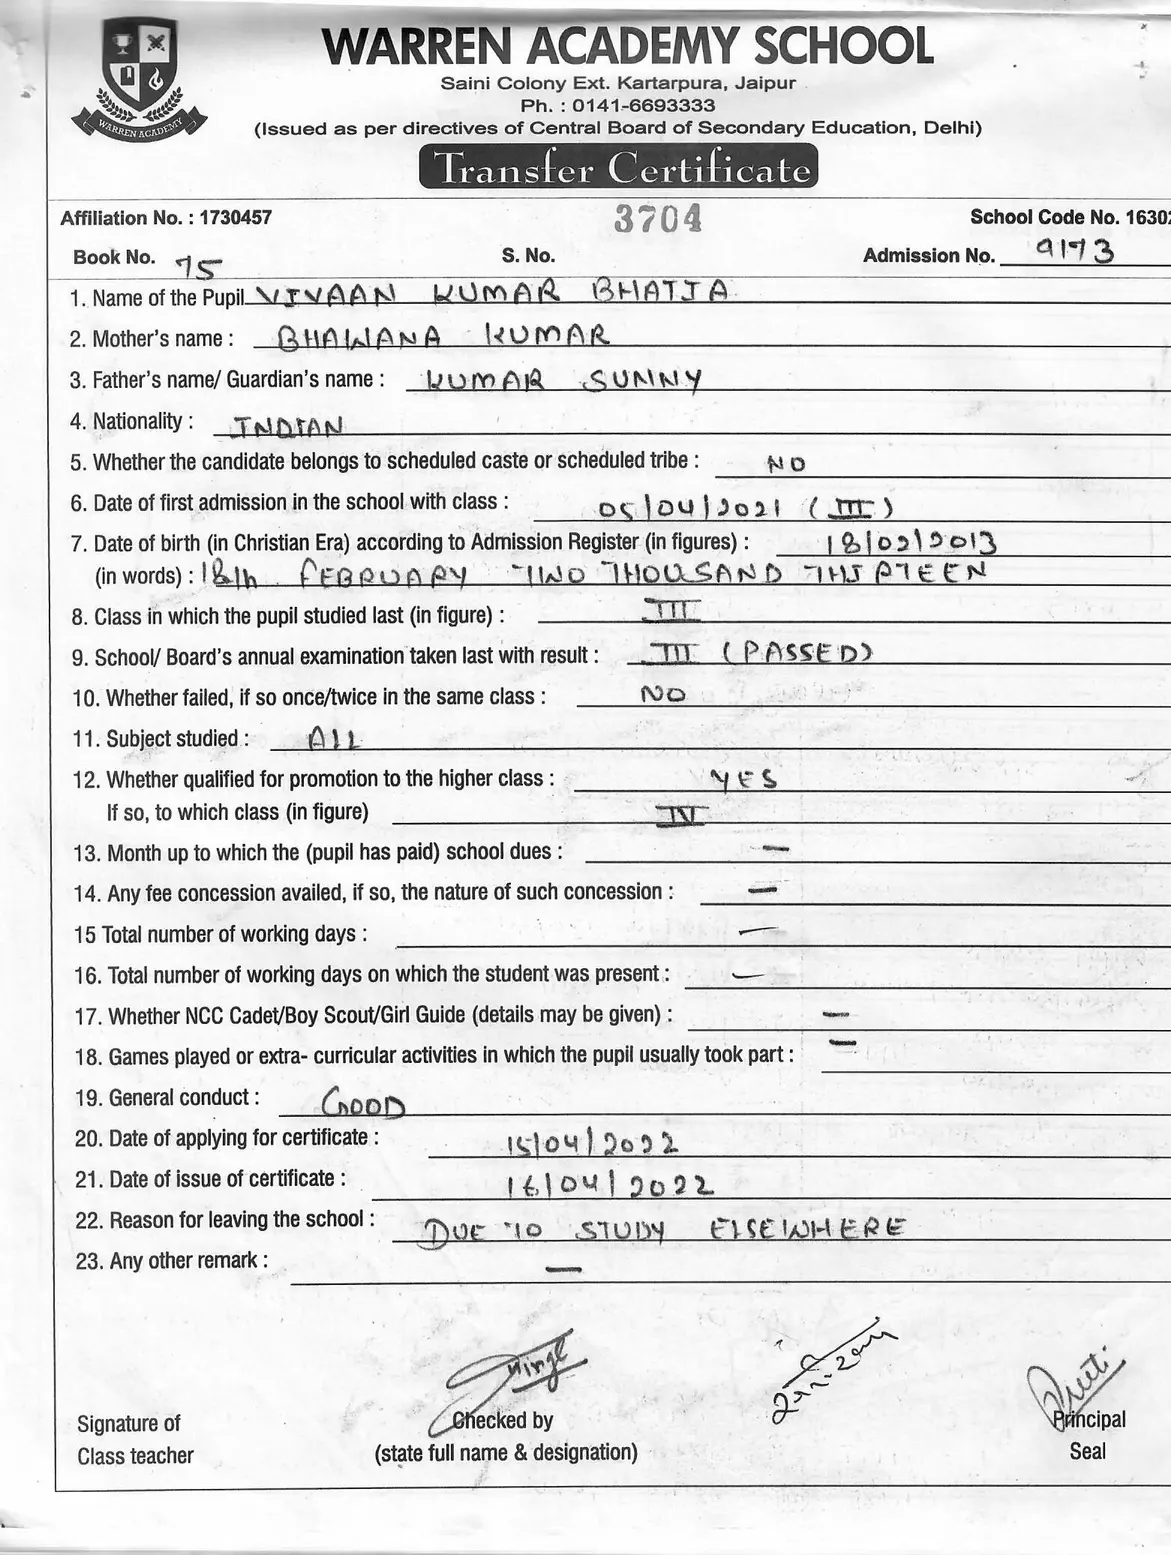 WARREN ACADEMY SCHOOL
Saini Colony Ext. Kartarpura, Jaipur
Ph. : 0141-6693333
(Issued as per directives of Central Board of Secondary Education, Delhi)
WARREN ACADEMY
Transfer Certificate
Affiliation No. : 1730457 3704 School Code No. 16302
Book No. 75 S. No. Admission No. 9173
1. Name of the Pupil VIVAAN KUMAR BHATIA
2. Mother's name : BHAWANA KUMAR
3. Father's name/ Guardian's name : KUMAR SUNNY
4. Nationality : INDIAN
5. Whether the candidate belongs to scheduled caste or scheduled tribe : NO
6. Date of first admission in the school with class : 05/04/2021 (III)
7. Date of birth (in Christian Era) according to Admission Register (in figures) : 18/02/2013
(in words) : 18th FEBRUARY TWO THOUSAND THIRTEEN
8. Class in which the pupil studied last (in figure) : III
9. School/ Board's annual examination taken last with result : III (PASSED)
10. Whether failed, if so once/twice in the same class : NO
11. Subject studied : All
12. Whether qualified for promotion to the higher class : YES
If so, to which class (in figure) IV
13. Month up to which the (pupil has paid) school dues : –
14. Any fee concession availed, if so, the nature of such concession : –
15 Total number of working days : –
16. Total number of working days on which the student was present : –
17. Whether NCC Cadet/Boy Scout/Girl Guide (details may be given) : –
18. Games played or extra- curricular activities in which the pupil usually took part : –
19. General conduct : GOOD
20. Date of applying for certificate : 15/04/2022
21. Date of issue of certificate : 16/04/2022
22. Reason for leaving the school : DUE TO STUDY ElSEWHERE
23. Any other remark : –
Signature of Checked by Principal
Class teacher (state full name & designation) Seal